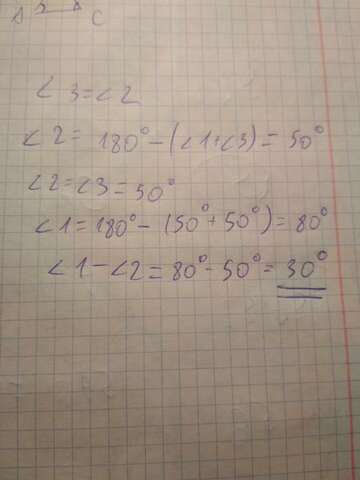 A C
∠3=∠2
∠2= 180°-(∠1+∠3)=50°
∠2=∠3=50°
∠1=180°-(50°+50°)=80°
∠1-∠2=80°-50°=30°